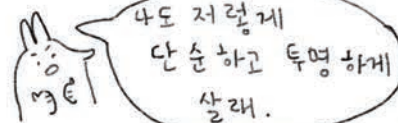 나도 저렇게
단순하고 투명하게
살래.